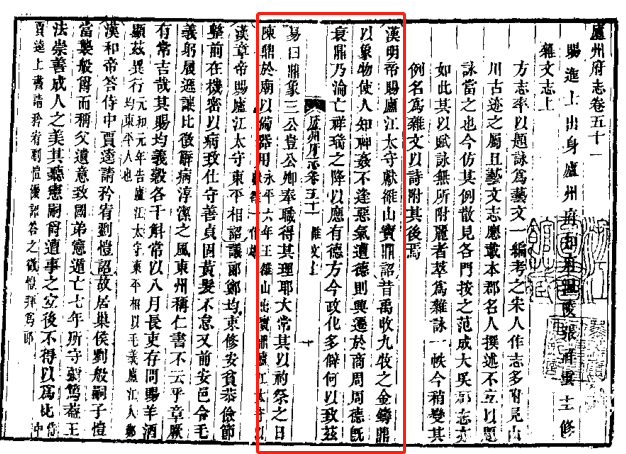 廬州府志卷五十一
賜進士出身廬州府知府張祥雲主修
雜文志上
方志率以題詠爲藝文一編考之宋人作志多附見山
川古迹之屬且藝文志應載本郡名人撰述不立以題
詠當之也今仿其例散見各門按之范成大吳郡志亦
如此其以賦詠無所附麗者萃爲雜詠一帙今稍變其
例名爲雜文以詩附其後焉
漢明帝賜廬江太守獻雒山寶鼎詔昔禹收九牧之金鑄鼎
以象物使人知神姦不逢惡氣遭德則興遷於商周周德旣
衰鼎乃淪亡祥瑞之降以應有德方今政化多僻何以致茲
廬州府志卷五十一 雜文上
易曰鼎象三公豈公卿奉職得其理耶太常其以礿祭之日
陳鼎於廟以備器用永平六年王雒山出寶鼎廬江太守
漢章帝賜廬江太守東平相詔議郞鄭均束修安貧恭儉節
整前在機密以病致仕守善貞固黃髮不怠又前安邑令毛
義躬履遜讓比徵辭病淳潔之風東州稱仁書不云乎章厥
有常吉哉其賜均義穀各千斛常以八月長吏存問賜羊酒
顯茲異行元和元年告廬江太守東平相以毛義廬江人鄭均東平人也
漢和帝答侍中賈逵請矜宥劉愷詔故居巢侯劉般嗣子愷
當襲般爵而稱父遺意致國弟憲遁亡七年所守彌篤蓋王
法崇善成人之美其聽憲嗣爵遭事之宜後不得以爲比
賈逵上書請矜宥劉愷